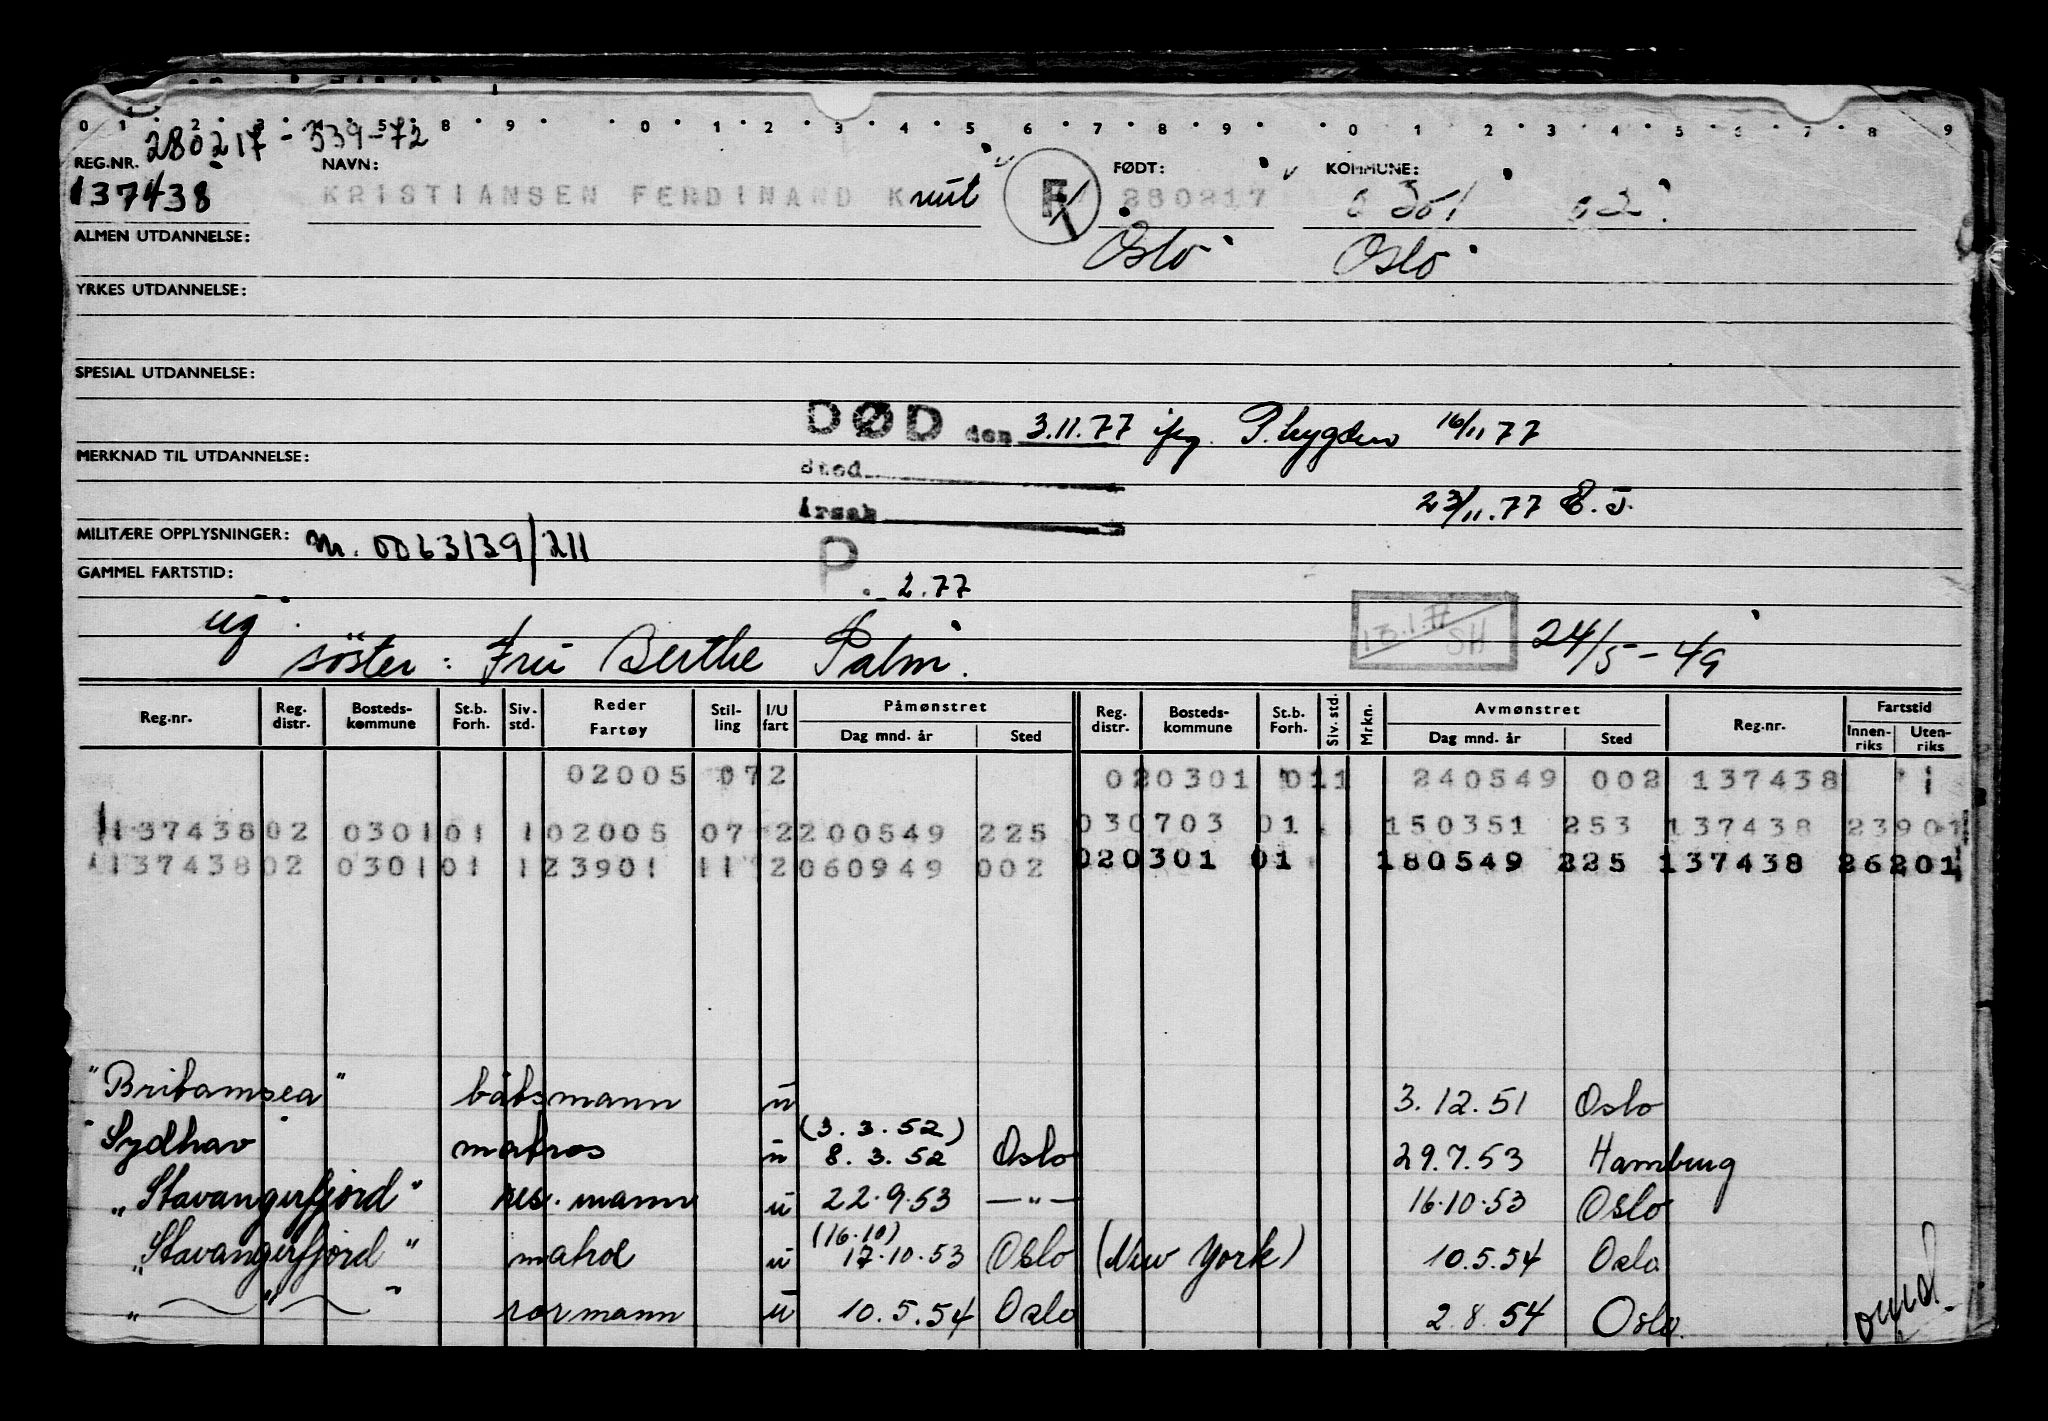 0 1 2 3 4 5 8 9 0 1 2 3 4 5 6 7 8 9 0 1 2 3 4 5 6 7 8 9
280217 - 339-72
REG.NR. NAVN: FØDT: KOMMUNE:
137438 KRISTIANSEN FERDINAND Knut F 280217 0301 02.
ALMEN UTDANNELSE: Oslo Oslo
YRKES UTDANNELSE:
SPESIAL UTDANNELSE:
DØD den 3.11.77 ifg. P.trygden 16/11 77
MERKNAD TIL UTDANNELSE: Sted
Årsak 23/11.77 E.J.
MILITÆRE OPPLYSNINGER: nr. 0063139/211
P
GAMMEL FARTSTID: 2.77
ug. 13.1.77 SH 24/5-49
søster: Fru Berthe Palm.
Reg.nr. Reg. distr. Bosteds- kommune St.b. Forh. Siv. std. Reder Fartøy Stil- ling I/U fart Påmønstret Dag mnd. år Sted Reg. distr. Bosteds- kommune St.b. Forh. Siv. std. Mrkn. Avmønstret Dag mnd. år Sted Reg.nr. Fartstid Innen- riks Uten- riks
02005 072 020301 011 240549 002 137438 1
137438 02 0301 01 1 02005 07 2 200549 225 030703 01 150351 253 137438 23901
137438 02 0301 01 1 23901 11 2 060949 002 020301 01 180549 225 137438 26201
"Britamsea" båtsmann u 3.12.51 Oslo
(3.3.52)
"Sydhav matros u 8.3.52 Oslo 29.7.53 Hamburg
"Stavangerfjord" res. mann u 22.9.53 —"— 16.10.53 Oslo
(16.10)
"Stavangerfjord" matros u 17.10.53 Oslo (New York) 10.5.54 Oslo
" — " — " rormann u 10.5.54 Oslo 2.8.54 Oslo.